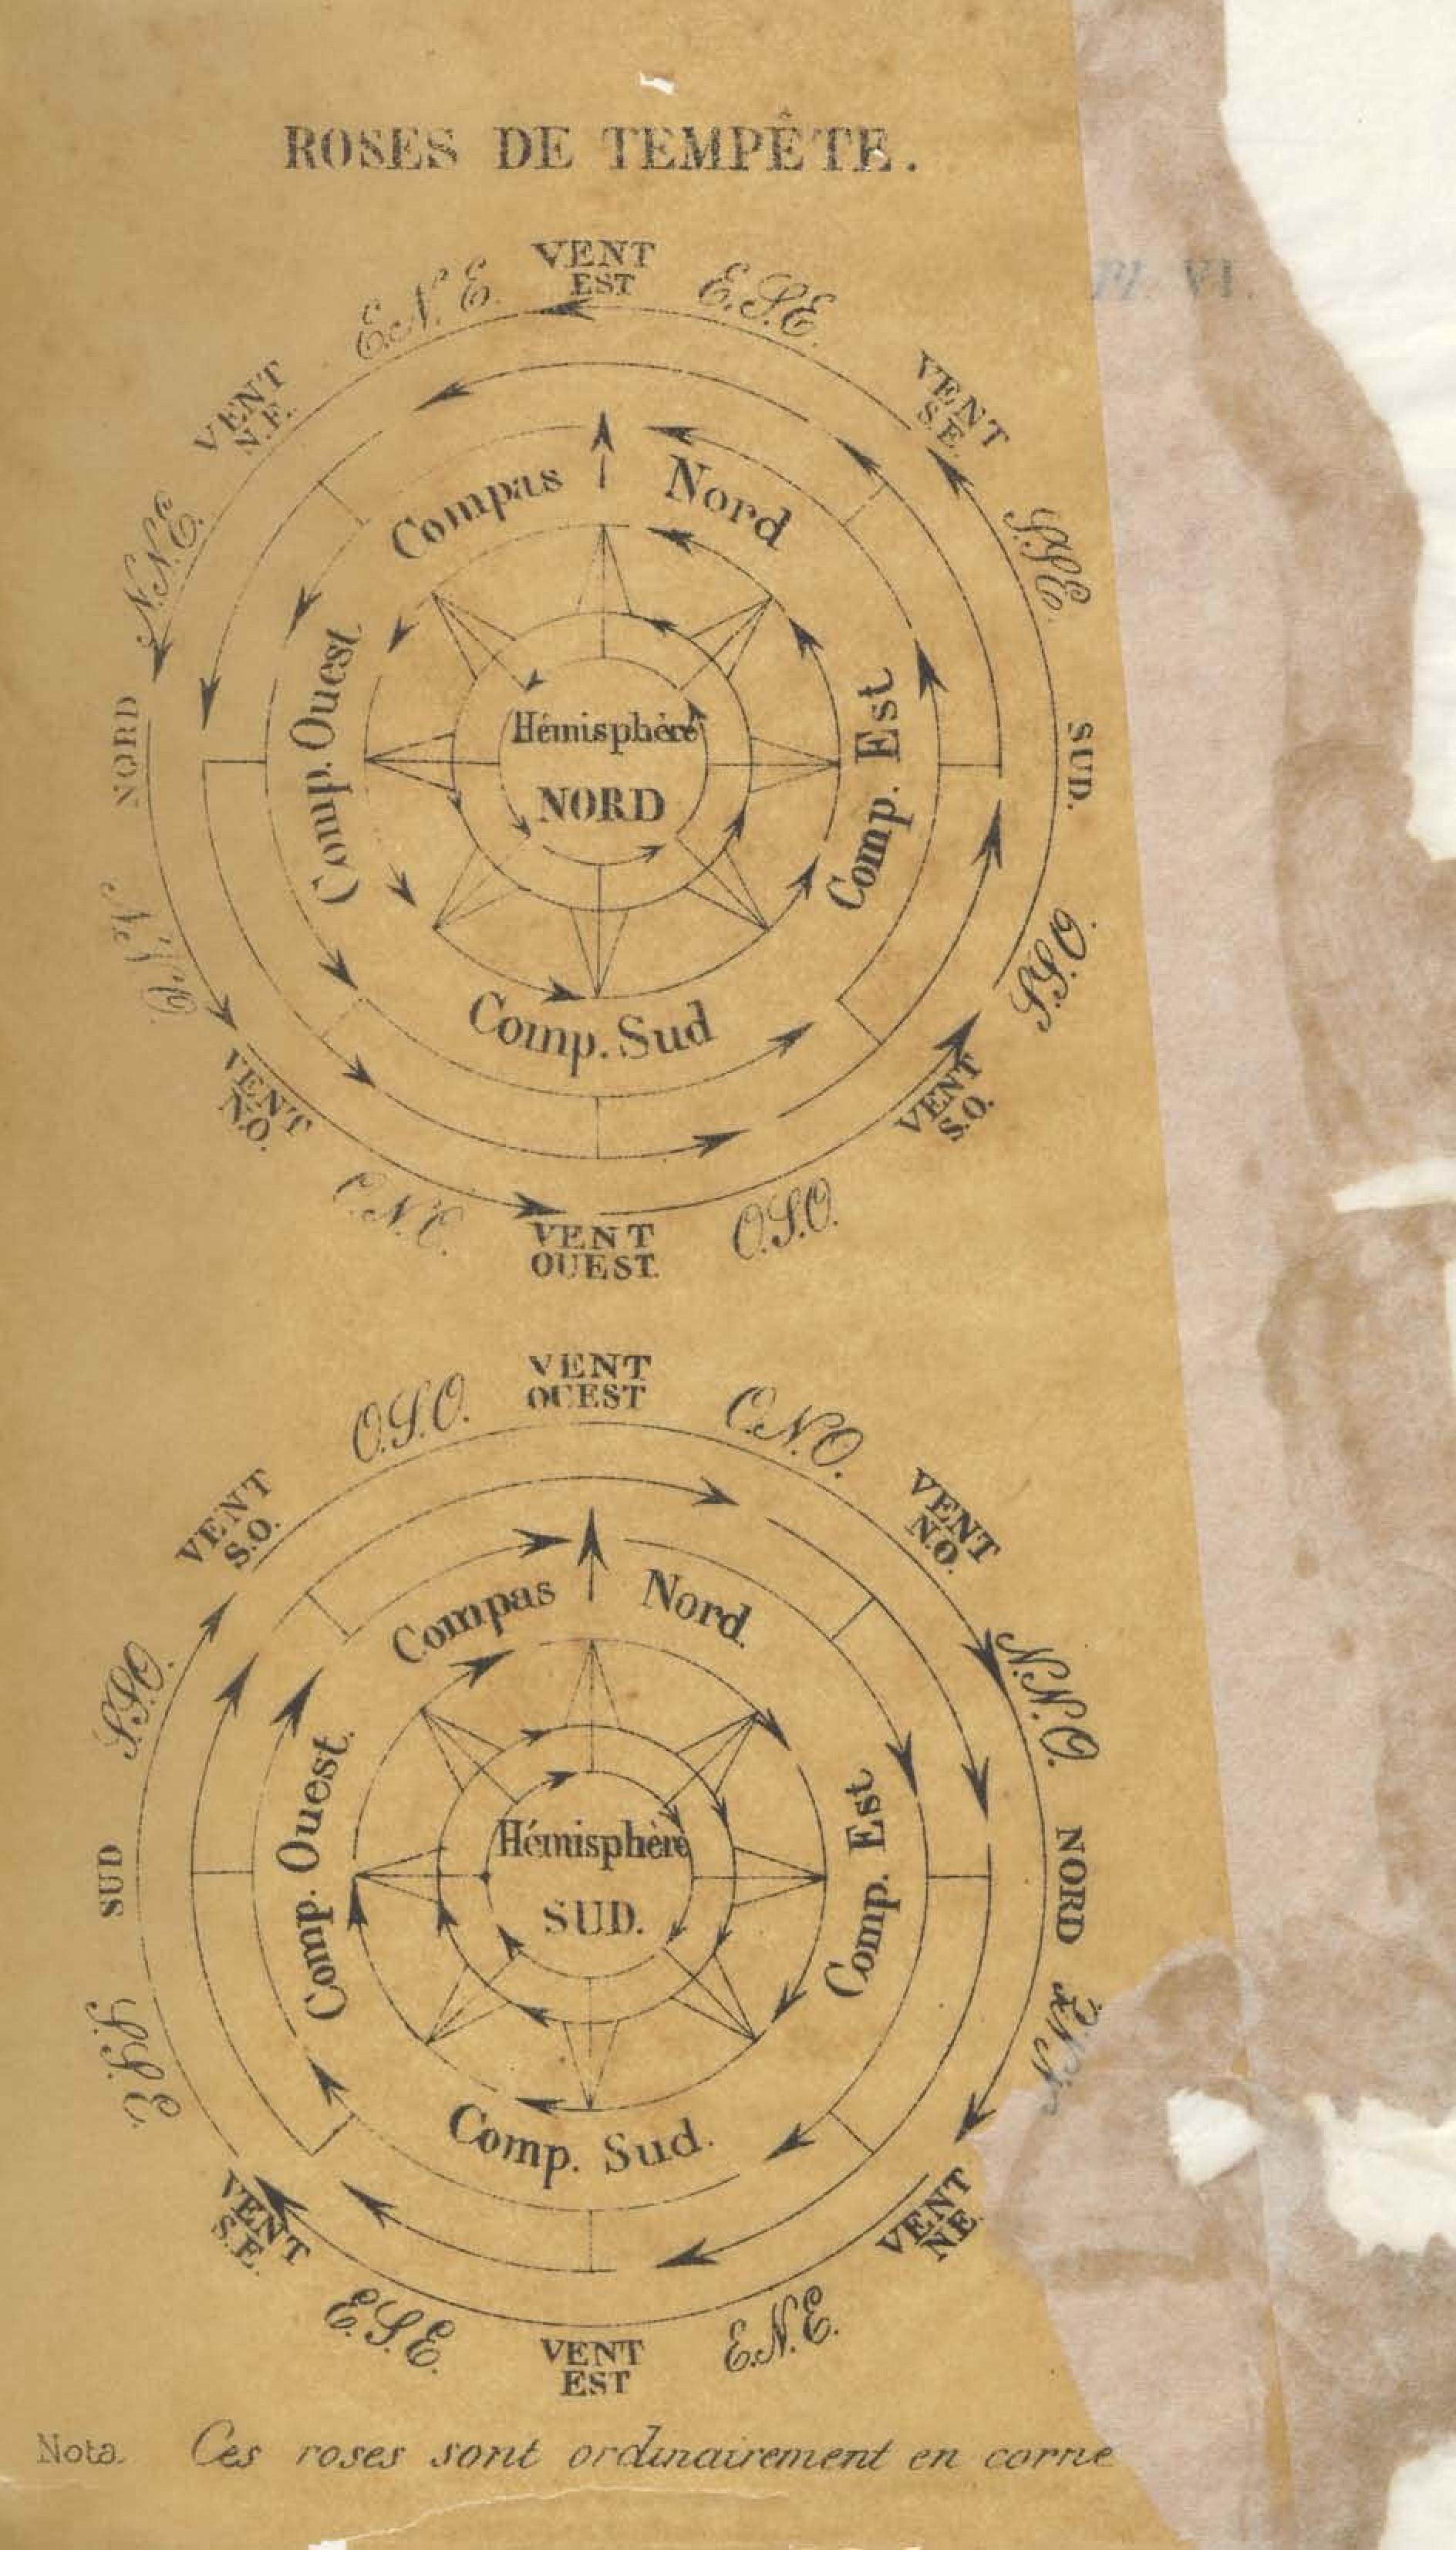 ROSES DE TEMPÊTE.
Pl. VI.
VENT
EST
E.N.E.
E.S.E.
VENT
N.E.
VENT
S.E.
N.N.E.
S.S.E.
Compas Nord
Comp. Ouest
Comp. Est
Hémisphère
NORD
NORD
SUD.
N.N.O.
S.S.O.
Comp. Sud
VENT
N.O.
VENT
S.O.
O.S.O.
VENT
OUEST.
VENT
OUEST
O.S.O.
O.N.O.
VENT
S.O.
VENT
N.O.
S.S.O.
N.N.O.
Compas Nord.
Comp. Ouest.
Comp. Est
Hémisphère
SUD.
SUD
NORD
S.S.E.
Comp. Sud.
VENT
S.E.
VENT
N.E.
E.S.E.
E.N.E.
VENT
EST
Nota. Ces roses sont ordinairement en corne